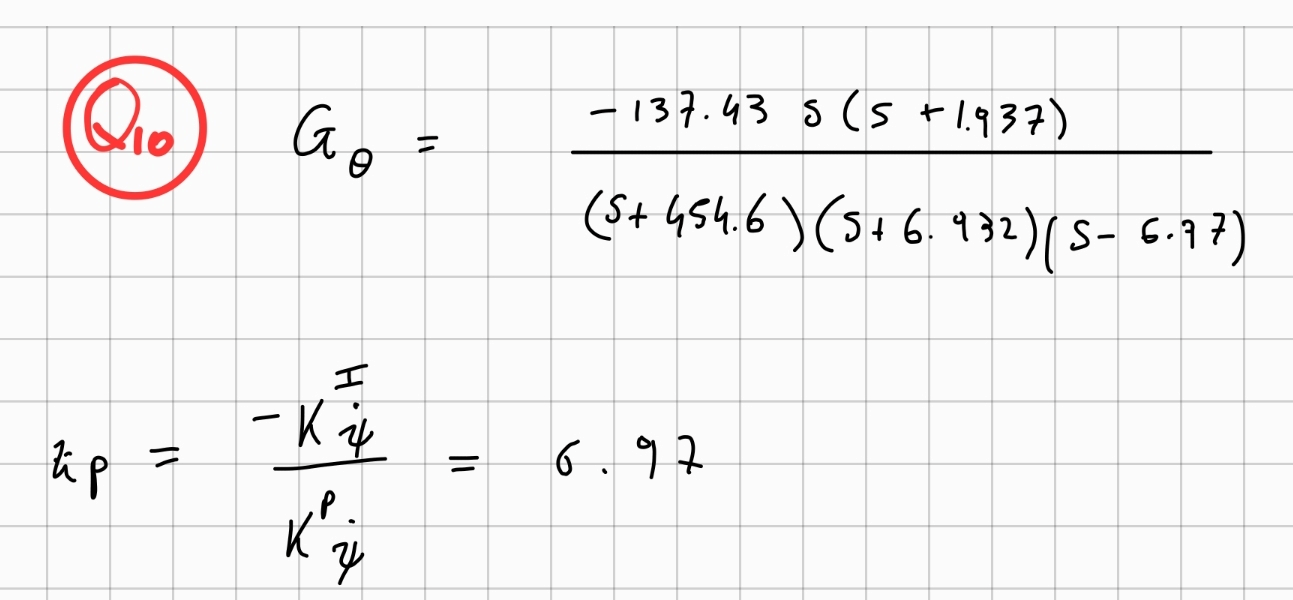 Q10 G_θ = -137.43 s (s + 1.937) / (s + 454.6)(s + 6.932)(s - 6.97)
z_p = -K^I_ψ̇ / K^P_ψ̇ = 6.97